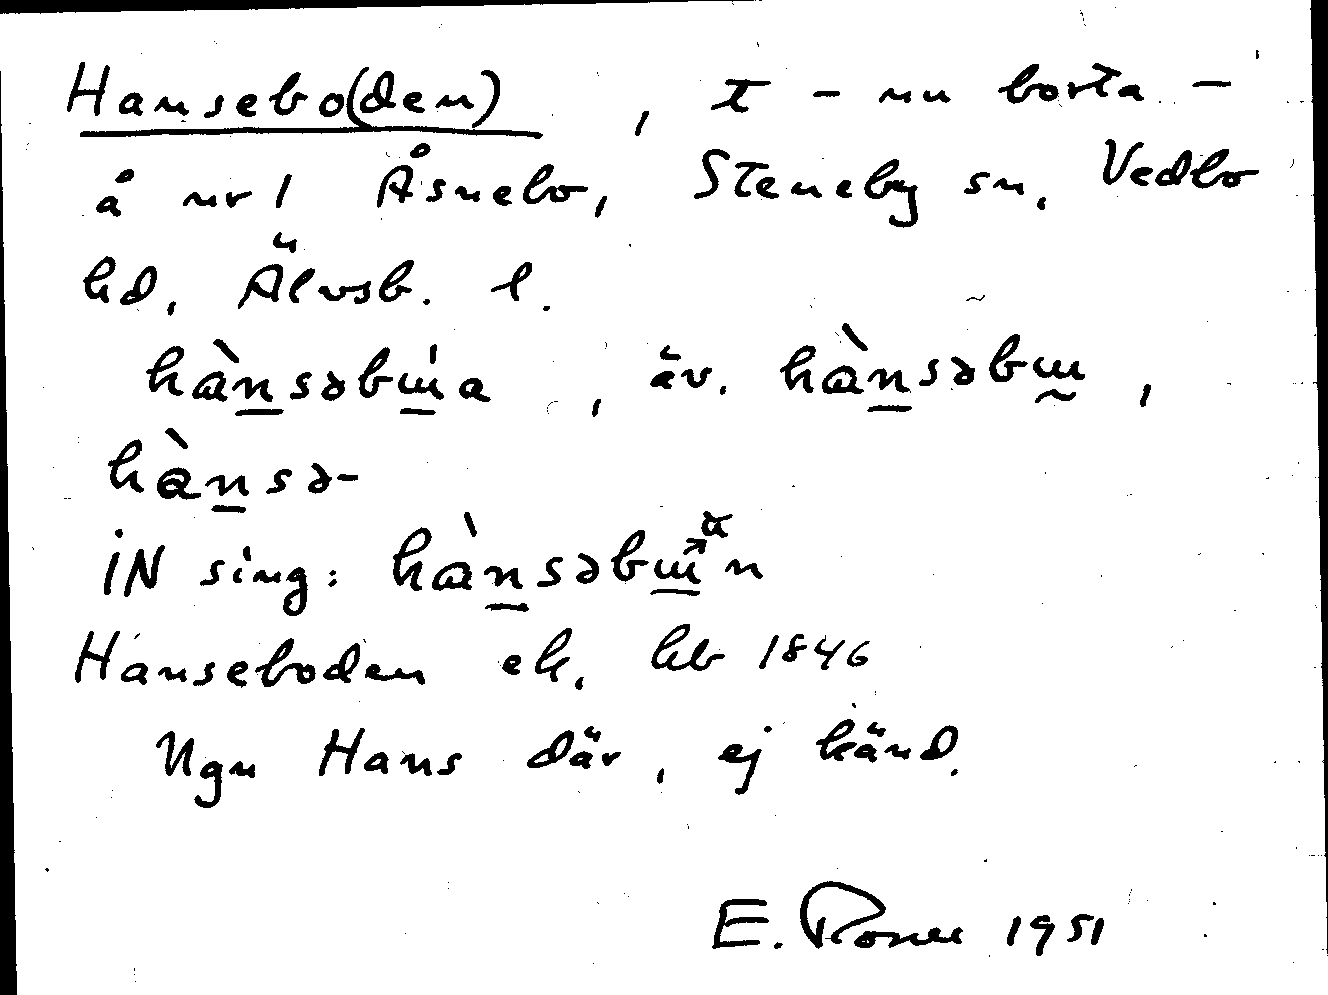 Hansebo(den), t - nu borta -
å nr 1 Åsnebo, Steneby sn, Vedbo
hd, Älvsb. l.
hànsəbɯ̀a, äv. hànsəbɯ,
hànsə-
iN sing: hànsəbɯän
Hanseboden ek. hb 1846
Ngn Hans där, ej känd.
E. Rosell 1951